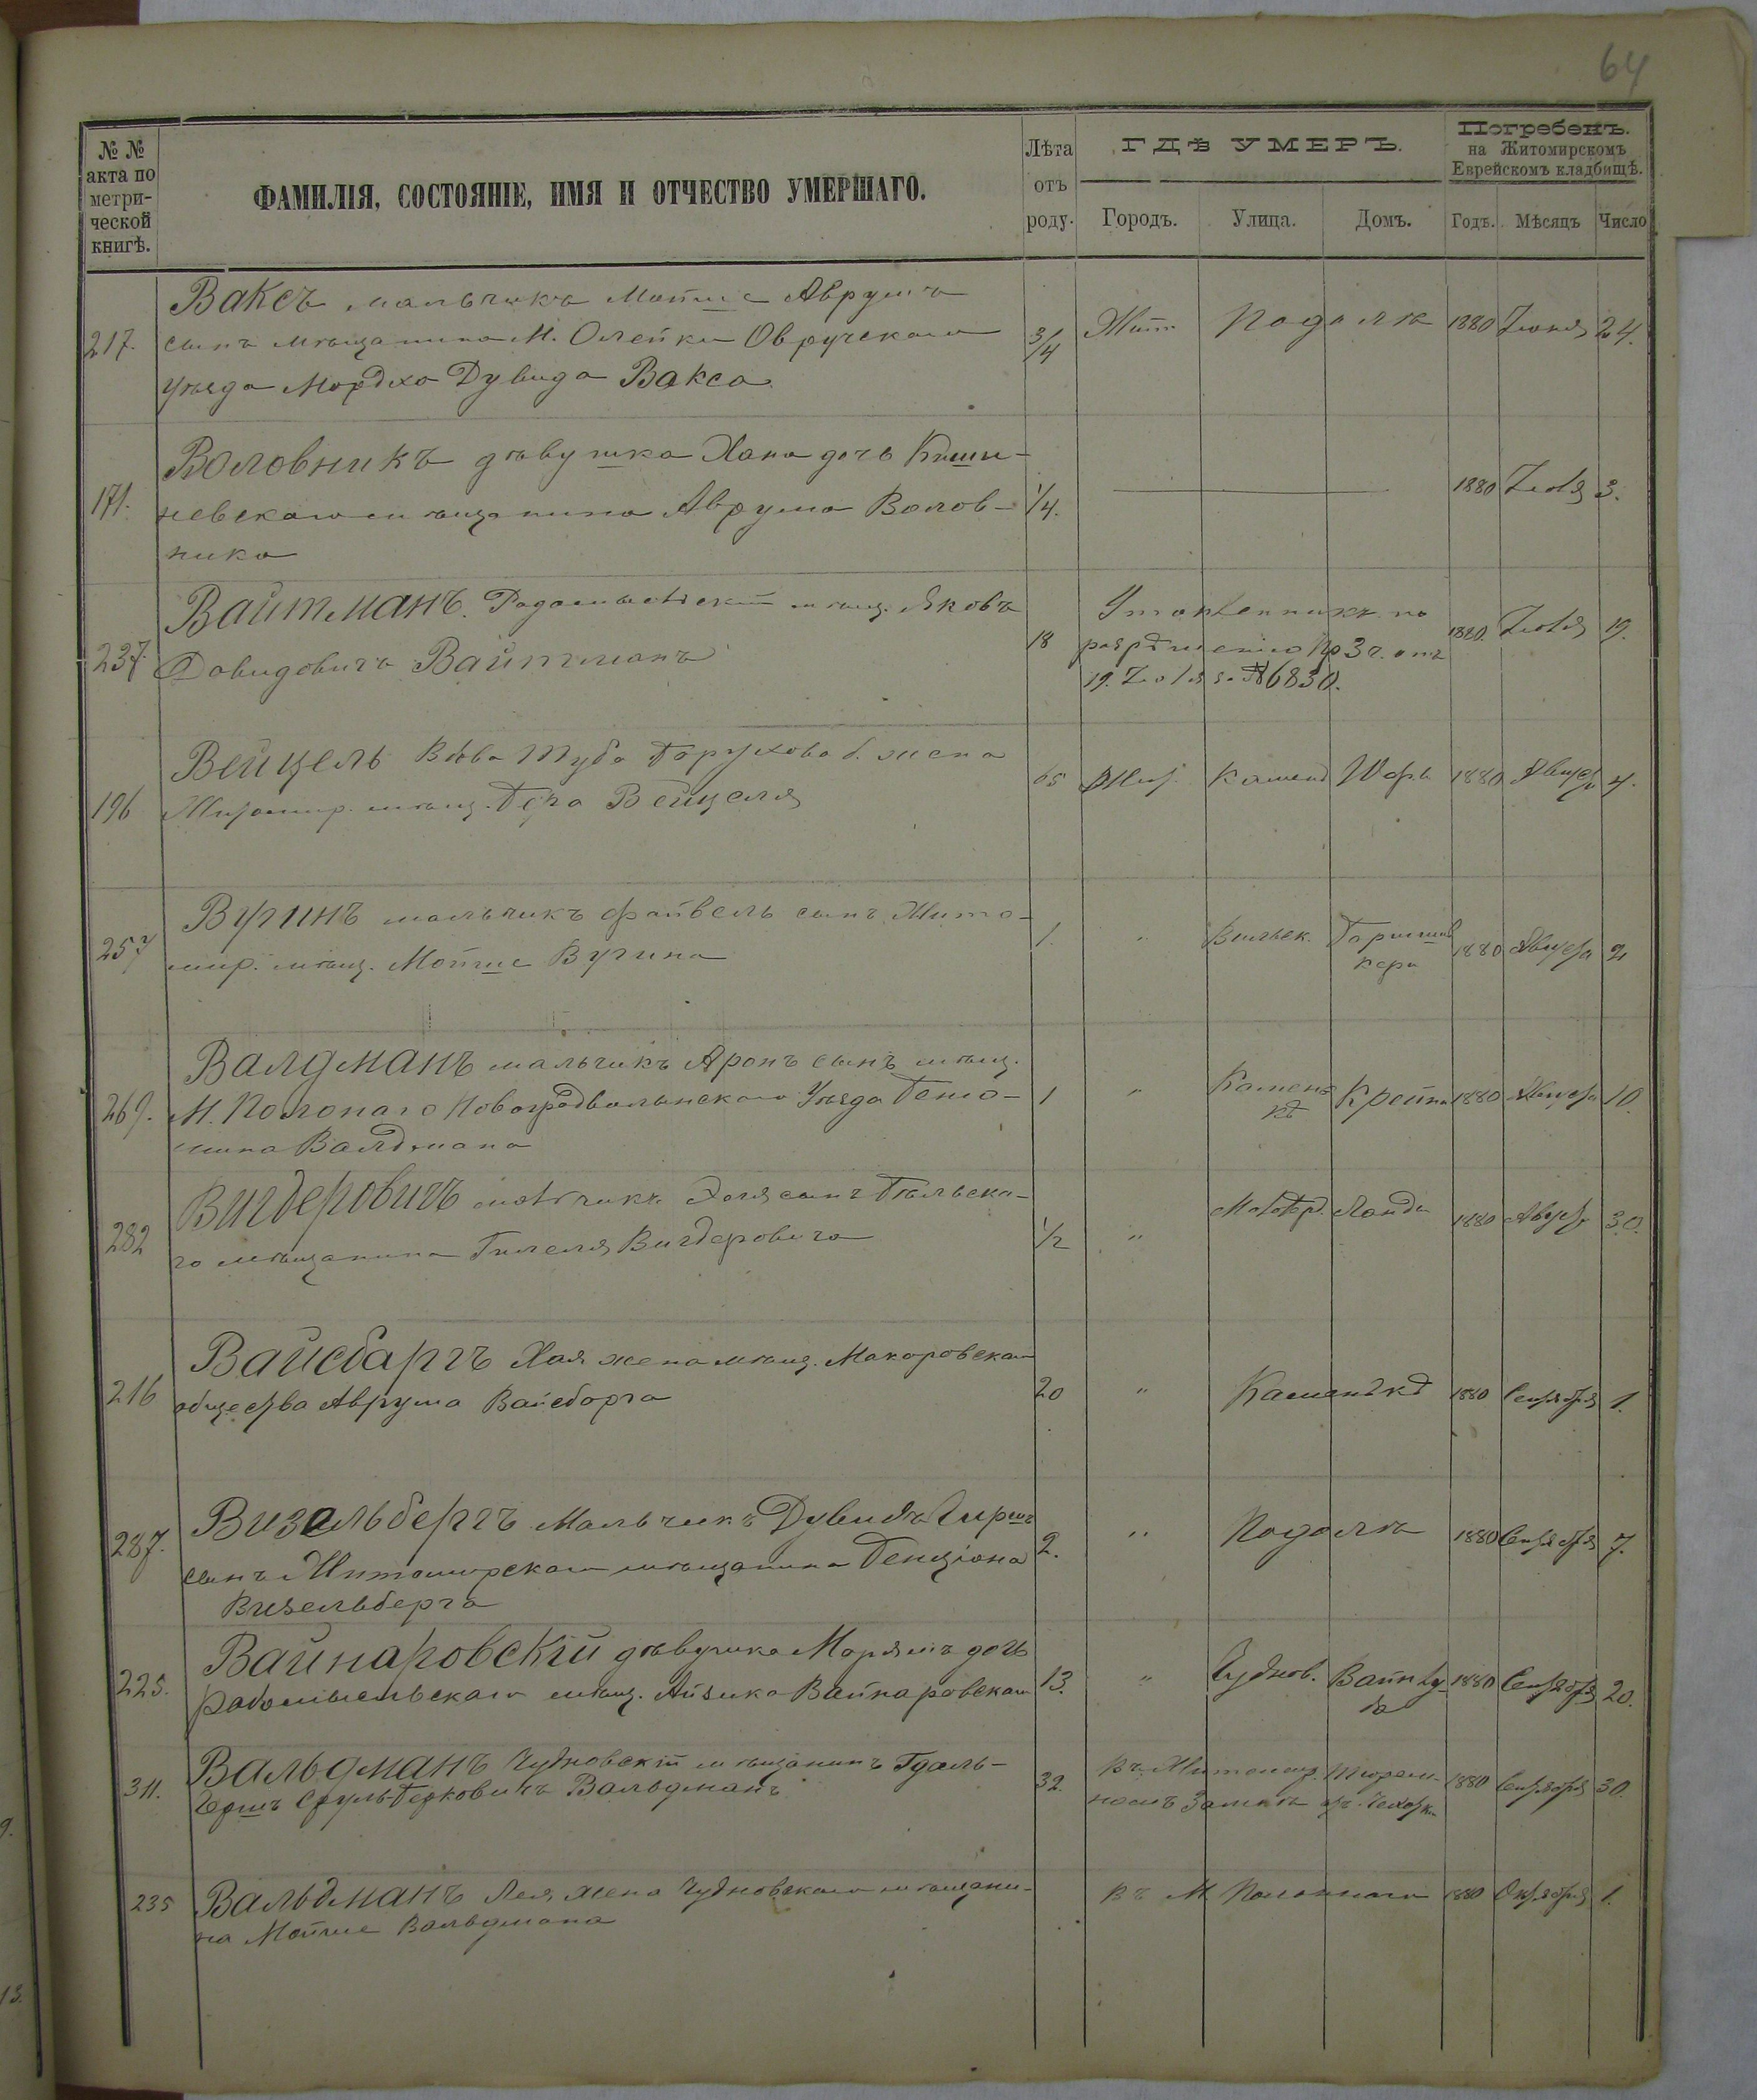 64
№ №
акта по
метри-
ческой
книгѣ.
ФАМИЛІЯ, СОСТОЯНІЕ, ИМЯ И ОТЧЕСТВО УМЕРШАГО.
Лѣта
отъ
роду.
ГДѢ УМЕРЪ.
Городъ.
Улица.
Домъ.
Погребенъ.
на Житомирскомъ
Еврейскомъ кладбищѣ.
Годъ.
Мѣсяцъ
Число
217.
Ваксъ мальчикъ Мойше Аврумъ
сынъ мѣщанина М. Олейки Овручскаго
уѣзда Мордхо Дувида Вакса
3/4
Жит
Подолѣ
1880
Іюня
24.
171.
Воловникъ дѣвушка Хана дочь Киши-
невскаго мѣщанина Аврума Волов-
ника
1/4.
1880
Іюля
3.
237.
Вайтманъ. Радомысльскій мѣщ. Яковъ
Давидовичъ Вайтманъ
18
Утопленникъ по
разрѣшенію Пр 3 ч. отъ
19. Іюля за № 6830.
1880.
Іюля
19.
196
Вейцель Вдова Туба Борухова б. жена
Житомир. мѣщ. Бера Вейцеля
65
Жит.
1880
Август
4.
257
Вугинъ мальчикъ Файвель сынъ Жито-
мир. мѣщ. Мойше Вугина
1.
"
Вильск.
1880
Августа
2
269.
Валдманъ мальчикъ Аронъ сынъ мѣщ.
М. Полонаго Новоградволынскаго Уѣзда Беню-
мина Валдмана
1
"
Камен-
кѣ
1880
Августа
10.
282
Вигдеровичъ мальчикъ сынъ Бѣльска-
го мѣщанина Гилеля Вигдеровича
1/2
"
Ланда
1880
Август
30.
216
Вайсбаргъ Хая жена мѣщ. Макаровскаго
общества Аврума Вайсборга
20
"
Каменькѣ
1880
Сентября
1.
287.
Визельбергъ Мальчикъ Дувидъ Гиршъ
сынъ Житомирскаго мѣщанина Бенціона
Визельберга
2.
"
Подолѣ
1880
Сентября
7.
225.
Вайнаровскій дѣвушка Марямъ дочь
Радомысльскаго мѣщ. Айзика Вайнаровскаго
13.
"
Чуднов.
1880
Сентября
20.
311.
Вальдманъ Чудновскій мѣщанинъ Гдаль-
Гершъ Сруль-Берковичъ Вальдманъ
32.
Въ Житомир. Тюрем-
номъ Замкѣ отъ Чахотки
1880
Сентября
30.
235
Вальдманъ Лея жена Чудновскаго мѣщани-
на Мойше Вальдмана
въ М Полонномъ
1880
Октября
1.